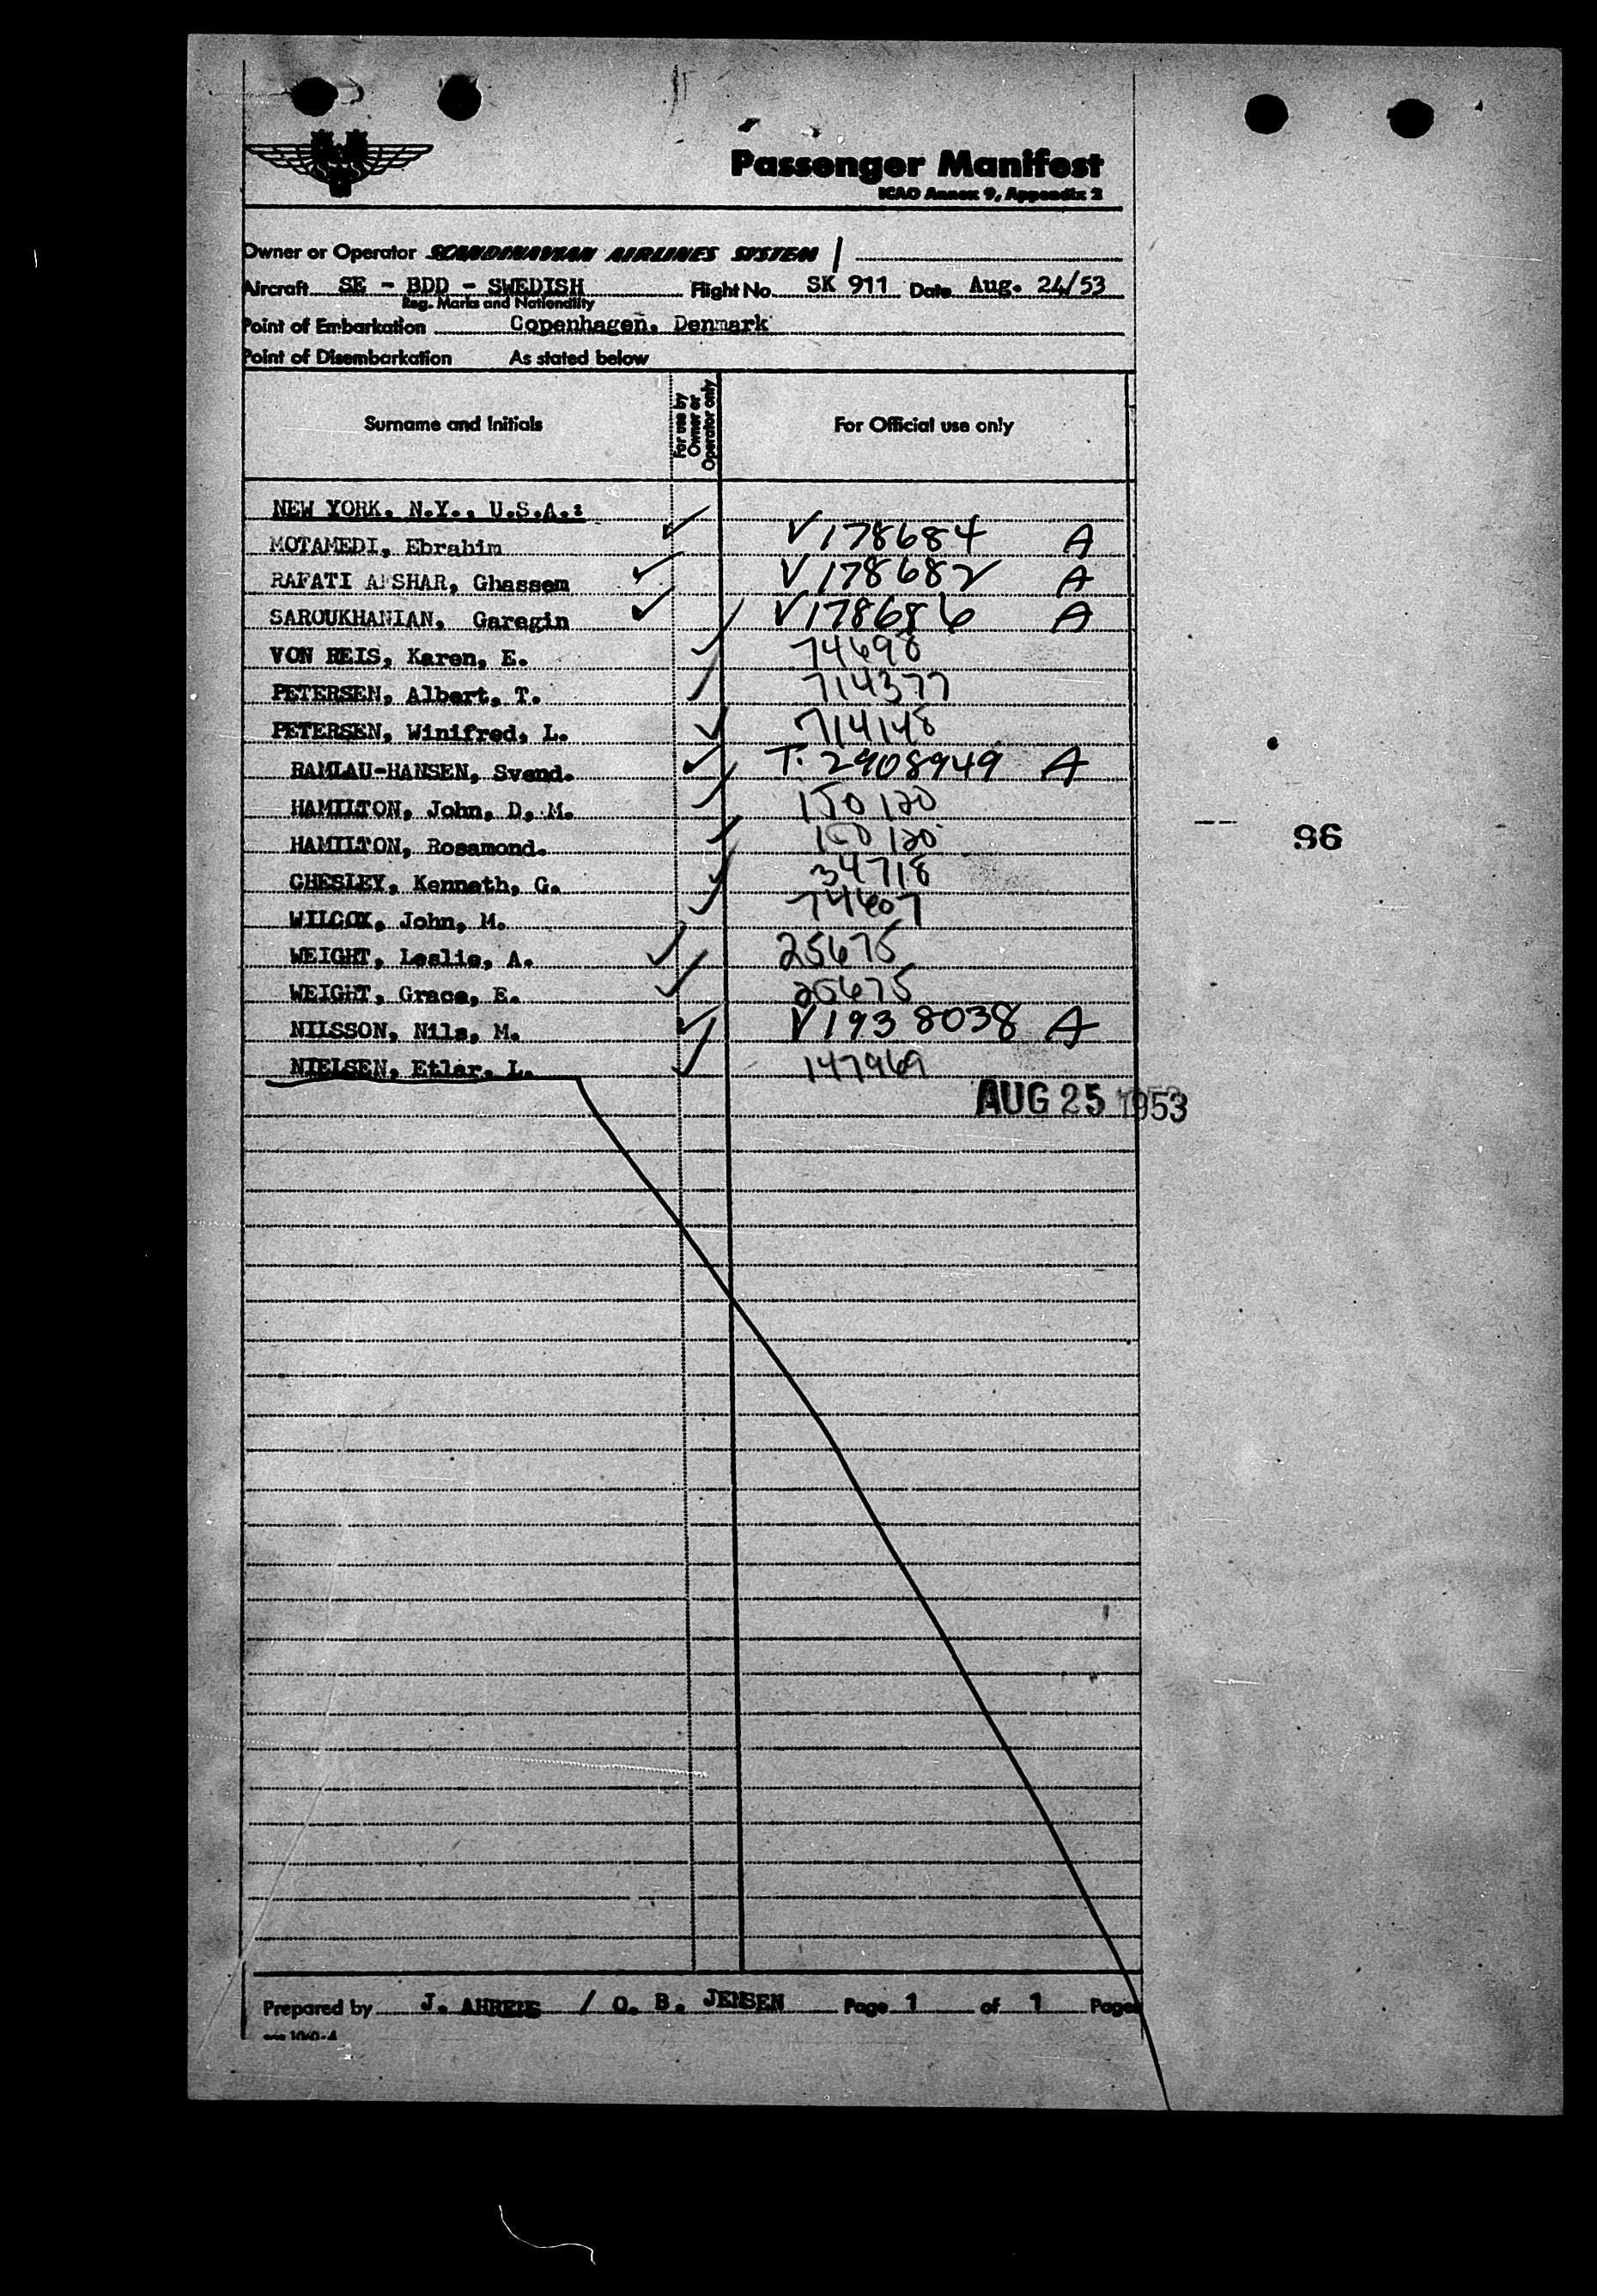 Passenger Manifest
ICAO Annex 9, Appendix 2
Owner or Operator SCANDINAVIAN AIRLINES SYSTEM
Aircraft SE - BDD - SWEDISH Flight No. SK 911 Date Aug. 24/53
Reg. Marks and Nationality
Point of Embarkation Copenhagen, Denmark
Point of Disembarkation As stated below
Surname and Initials For use by Owner or Operator only For Official use only
NEW YORK, N.Y., U.S.A.:
MOTAMEDI, Ebrahim V178684 A
RAFATI AFSHAR, Ghassem V178682 A
SAROUKHANIAN, Garegin V178686 A
VON REIS, Karen, E. 74698
PETERSEN, Albert, T. 714377
PETERSEN, Winifred, L. 714148
RAMLAU-HANSEN, Svend. T. 2908949 A
HAMILTON, John, D. M. 150120
HAMILTON, Rosamond. 150120
CHESLEY, Kenneth, G. 34718
WILCOX, John, M. 74607
WEIGHT, Leslie, A. 25675
WEIGHT, Grace, E. 25675
NILSSON, Nils, M. V1938038 A
NIELSEN, Etlar, L. 147969
AUG 25 1953
96
Prepared by J. AHRENS / O. B. JENSEN Page 1 of 1 Pages
1060-A